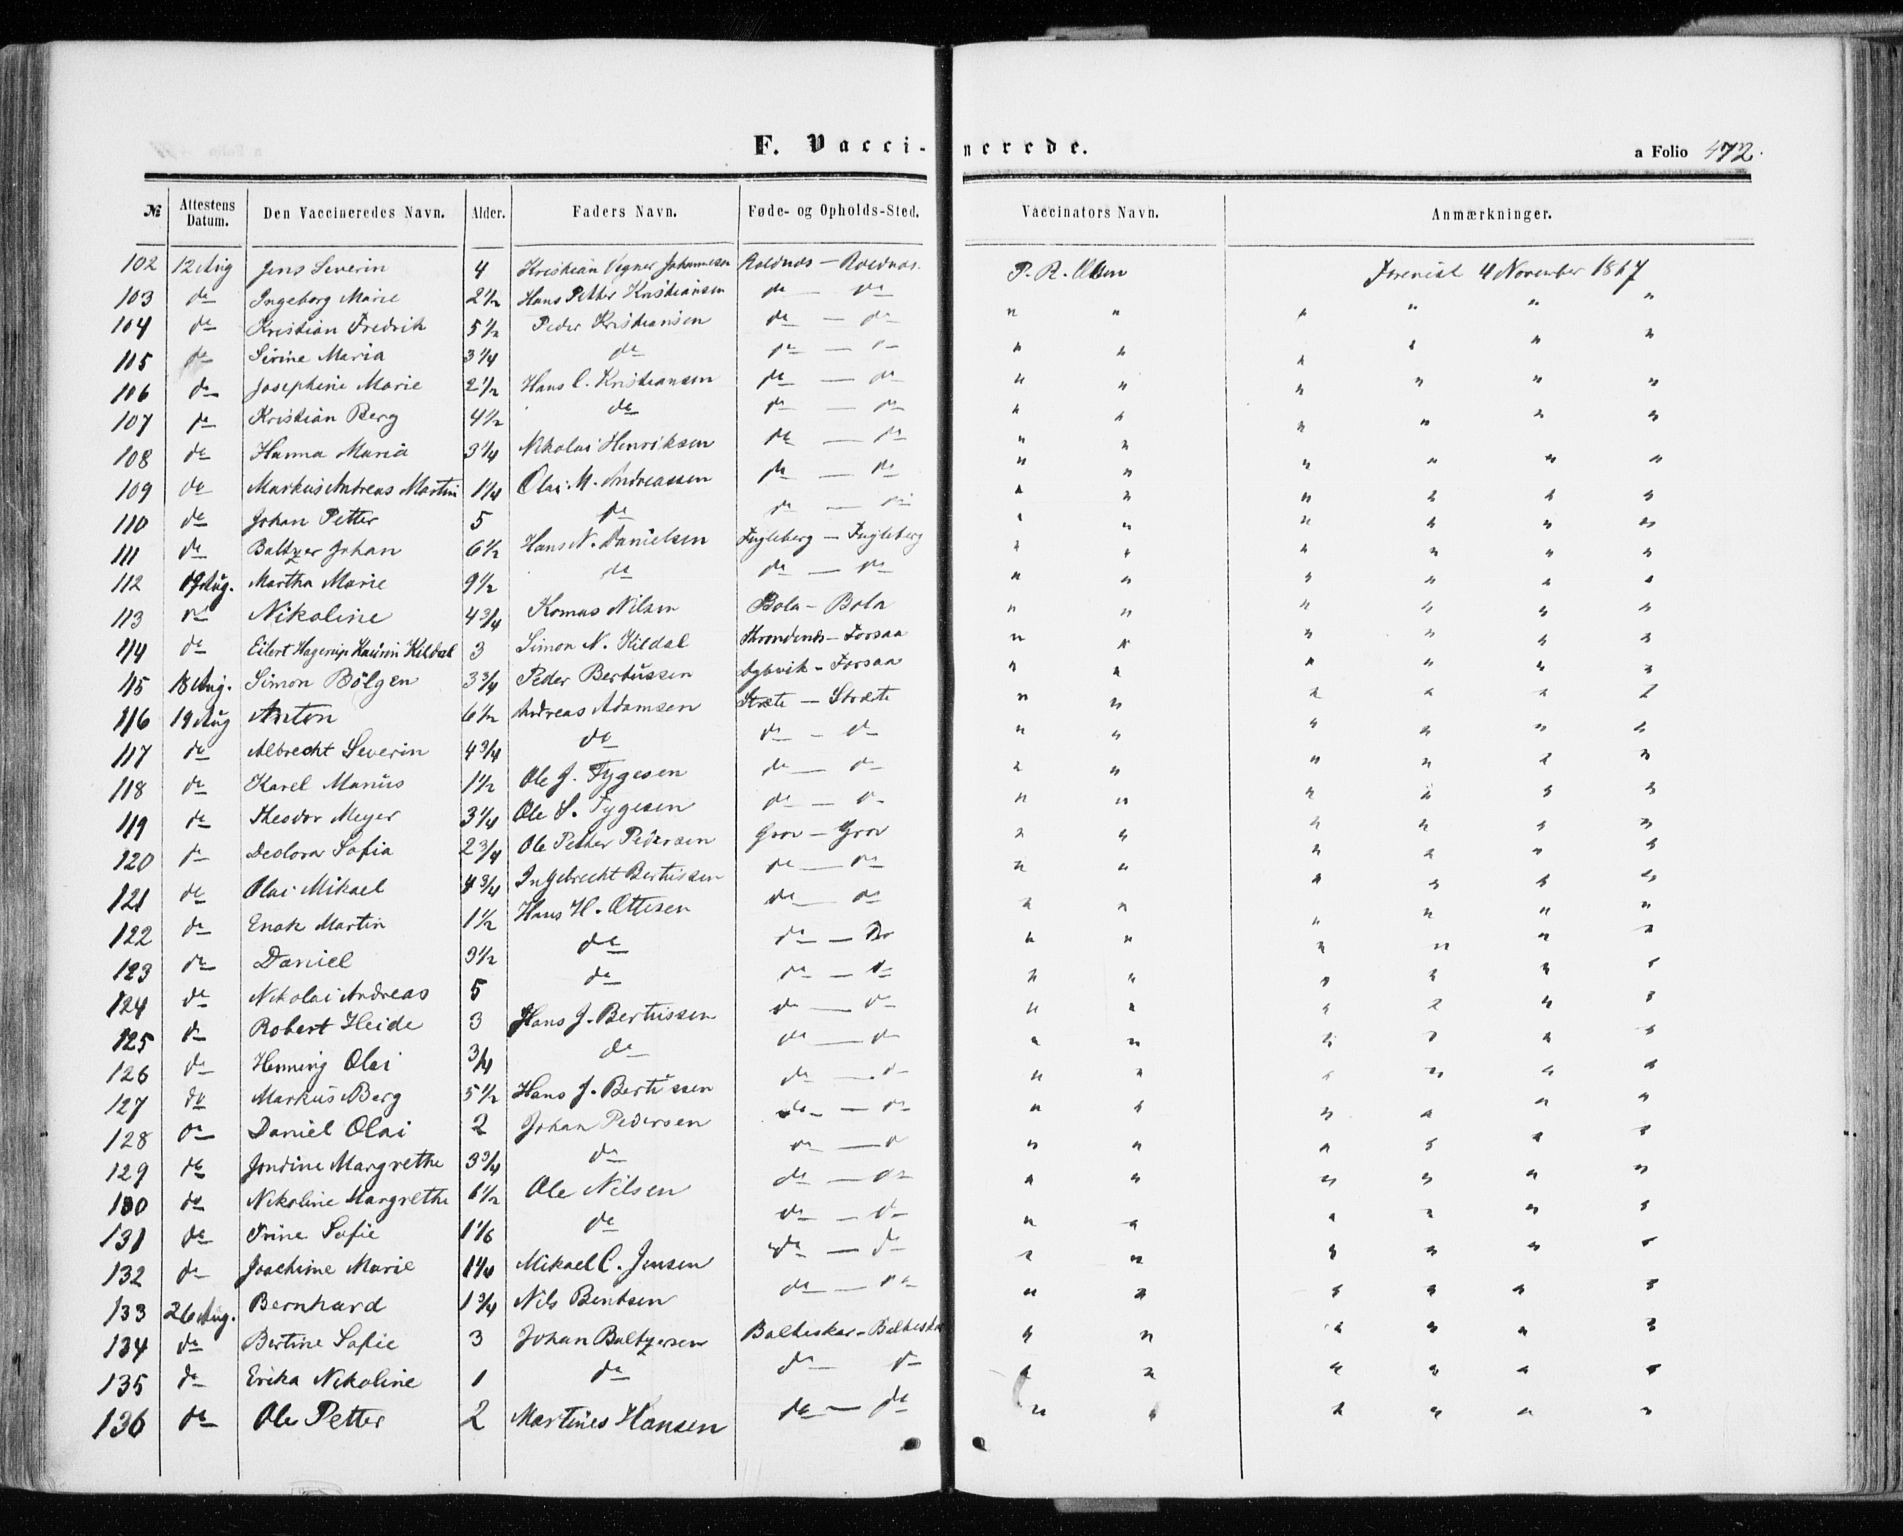 F. Vaccinerede.
a Folio 472.
№ Attestens Datum. Den Vaccineredes Navn. Alder. Faders Navn. Føde- og Opholds-Sted. Vaccinators Navn. Anmærkninger.
102 12 Aug Jens Severin 4 Kristian Vegner Johannesen Roldnæs — Roldnæs. P. R. Olsen Forevist 4 November 1867
103 do Ingeborg Marie 2 1/2 Hans Petter Kristiansen do — do " " " " " "
104 do Kristian Fredrik 5 1/2 Peder Kristiansen do — do " " " " " "
105 do Sirine Maria 3 1/4 do do — do " " " " " "
106 do Josephine Marie 2 1/2 Hans C. Kristiansen do — do " " " " " "
107 do Kristian Berg 4 1/2 do do — do " " " " " "
108 do Hanna Maria 3 1/4 Nikolai Henriksen do — do " " " " " "
109 do Markus Andreas Martin 1 1/4 Olai M. Andreassen do — do " " " " " "
110 do Johan Petter 5 do do — do " " " " " "
111 do Baltzer Johan 6 1/2 Hans N. Danielsen Fugleberg — Fugleberg " " " " " "
112 19 Aug. Martha Marie 9 1/2 do do — do " " " " " "
113 do Nikoline 4 3/4 Komas Nilsen Bola - Bola " " " " " "
114 do Eilert Hagerup Kildal 3 Simon N. Kildal Throndenæs - Forsaa " " " " " "
115 18 Aug. Simon Bölgen 3 3/4 Peder Bertussen Dybvik - Forsaa " " " " " "
116 19 Aug Anton 6 1/2 Andreas Adamsen Stræte — Stræte " " " " " "
117 do Albrecht Severin 4 3/4 do do - do " " " " " "
118 do Karel Marius 1 1/2 Ole J. Tygesen do — do " " " " " "
119 do Theodor Meyer 3 1/4 Ole S. Tygesen do — do " " " " " "
120 do Deolora Sofia 2 3/4 Ole Petter Pedersen Grov — Grov " " " " " "
121 do Olai Mikael 4 3/4 Ingebrecht Bertussen do — do " " " " " "
122 do Enok Martin 1 1/2 Hans H. Ottesen do — do " " " " " "
123 do Daniel 3 1/2 do do — do " " " " " "
124 do Nikolai Andreas 5 do do — do " " " " " "
125 do Robert Heide 3 Hans J. Bertussen do — do " " " " " "
126 do Henning Olai 3/4 do do — do " " " " " "
127 do Markus Berg 5 1/2 Hans J. Bertussen do — do " " " " " "
128 do Daniel Olai 2 Johan Pedersen do — do " " " " " "
129 do Jondine Margrethe 3 3/4 do do — do " " " " " "
130 do Nikoline Margrethe 6 1/2 Ole Nilsen do — do " " " " " "
131 do Trine Sofie 1 1/6 do do — do " " " " " "
132 do Joachime Marie 1 1/4 Mikael C. Jensen do — do " " " " " "
133 26 Aug. Bernhard 1 3/4 Nils Bentsen do — do " " " " " "
134 do Bertine Sofie 3 Johan Baltzersen Balteskar - Balteskar " " " " " "
135 do Erika Nikoline 1 do do — do " " " " " "
136 do Ole Petter 2 Martines Hansen do — do " " " " " "